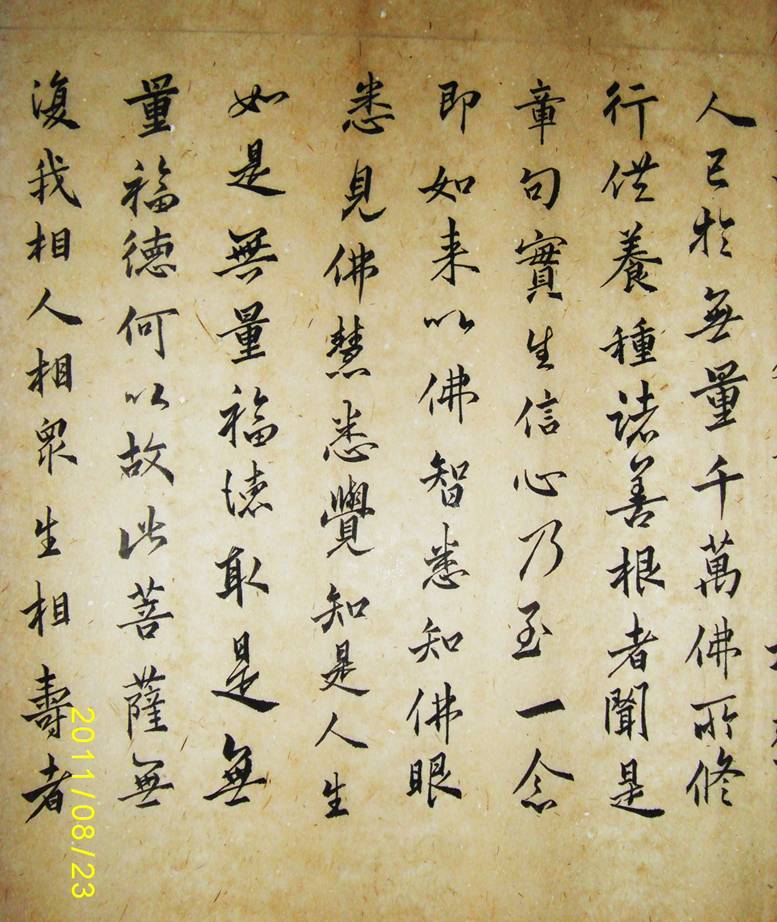 人已於無量千萬佛所修
行供養種諸善根者聞是
章句實生信心乃至一念
即如来以佛智悉知佛眼
悉見佛慧悉覺知是人生
如是無量福德取是無
量福德何以故此菩薩無
復我相人相眾生相壽者
2011/08/23